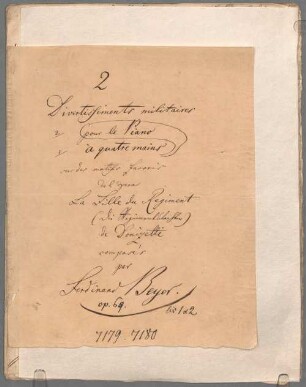 2
Divertissements militaires
pour le Piano
à quatre mains
sur des motifs favoris
de l'opera
La Fille du Regiment
(die Regimentstochter)
de Donizetti
composés
par
Ferdinand Beyer.
op. 69. No 1 & 2
7179 7180